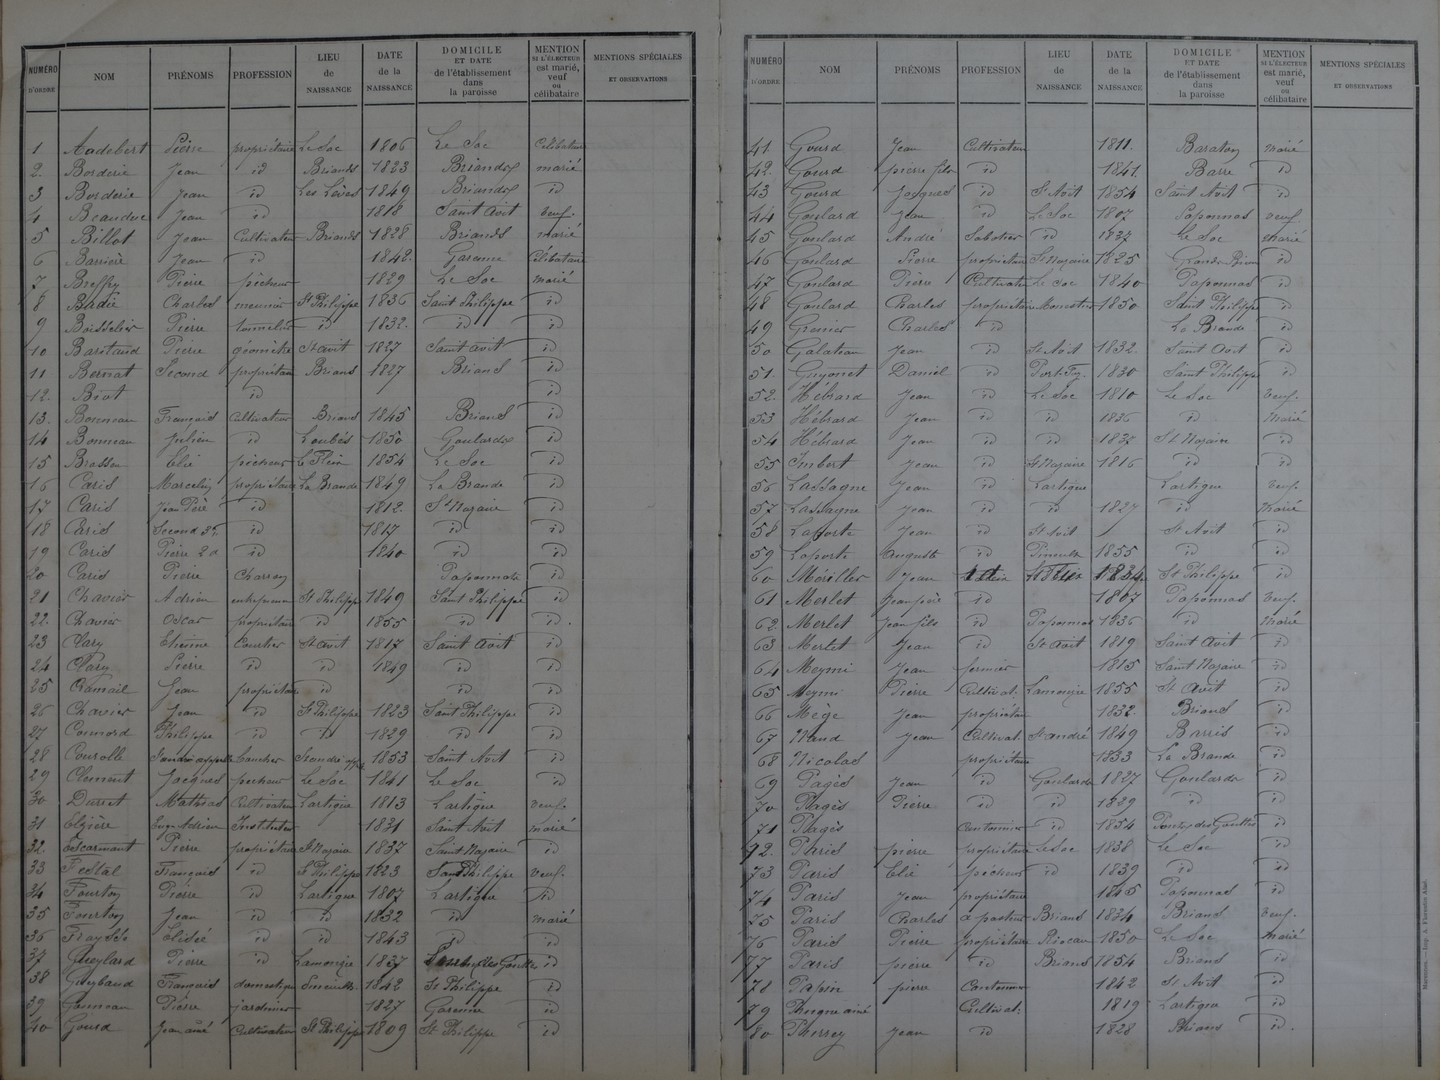 NUMÉRO D'ORDRE NOM PRÉNOMS PROFESSION LIEU de NAISSANCE DATE de la NAISSANCE DOMICILE ET DATE de l'établissement dans la paroisse MENTION SI L'ÉLECTEUR est marié, veuf ou célibataire MENTIONS SPÉCIALES ET OBSERVATIONS
1. Audebert Pierre propriétaire Le Soc 1806 Le Soc Célibataire
2. Borderie Jean id Briands 1823 Briands marié
3 Borderie Jean id Les Lèves 1849 Briands id
4 Jean id 1818 Saint Avit veuf.
5 Billot Jean Cultivateur Briands 1828 Briands marié
6 Barrière Jean id 1842 Garenne Célibataire
7 Pierre pêcheur 1829 Le Soc marié
8 Badie Charles meunier St Philippe 1836 Saint Philippe id
9 Pierre tonnelier id 1832. id id
10 Pierre géomètre St avit 1827 Saint avit id
11 Bernat Second propriétaire Briand 1827 Briand id
12. id id
13. Bonneau François Cultivateur Briand 1845 Briand id
14 Bonneau Julien id Loubès 1850 Goulards id
15 Élie pêcheur Le Flein 1854 Le Soc id
16 Caris Marcelin propriétaire La Brande 1849 La Brande id
17 Caris Jean Père id 1812. St Nazaire id
18 Caris Second id 1817 id id
19 Caris Pierre 2d id 1840 id id
20 Caris Pierre Charron Paponnat id
21 Chavier Adrien St Philippe 1849 Saint Philippe id
22. Chavier Oscar propriétaire id 1855 id id
23 Clary Etienne Courtier St avit 1817 Saint Avit id
24 Clary Pierre id id 1849 id id
25 Jean propriétaire id id id
26 Chavier Jean id St Philippe 1823 Saint Philippe id
27 Philippe id id 1829 id id
28 1853 Saint Avit id
29 Clément Jacques pêcheur Le Soc 1841 Le Soc id
30 Mathias Cultivateur Lartigue 1813 Lartigue veuf.
31 Instituteur 1831 Saint Avit marié
32. Escarmant Pierre propriétaire St Nazaire 1837 Saint Nazaire id
33 François id St Philippe 1823 Saint Philippe veuf.
34 Fourton Pierre id Lartigue 1807 Lartigue id
35 Fourton Jean id id 1832 id marié
36 Elisée id id 1843 id id
37 Gueylard Pierre id Lamonzie 1837 id
38 Gueybaud François domestique 1842 St Philippe id
39 Pierre jardinier 1827 Garenne id
40 Gourd Jean aîné Cultivateur St Philippe 1809 St Philippe id
NUMÉRO D'ORDRE NOM PRÉNOMS PROFESSION LIEU de NAISSANCE DATE de la NAISSANCE DOMICILE ET DATE de l'établissement dans la paroisse MENTION SI L'ÉLECTEUR est marié, veuf ou célibataire MENTIONS SPÉCIALES ET OBSERVATIONS
41 Gourd Jean Cultivateur 1811. marié
42. Gourd pierre fils id 1841. Barre id
43 Gourd Jacques id St Avit 1854 Saint Avit id
44 Goulard Jean id Le Soc 1807 Paponnat veuf
45 Goulard André Sabotier id 1837 Le Soc marié
46 Goulard Pierre propriétaire St Nazaire 1825 id
47 Goulard Pierre Cultivateur Le Soc 1840 Paponnat id
48 Goulard Charles propriétaire 1850 Saint Philippe id
49 Grenier Charles id La Brande id
50 Galateau Jean id St Avit 1832. Saint Avit id
51. Guyonet Daniel id Port Ste Foy 1830 Saint Philippe id
52. Hébrard Jean id Le Soc 1810 Le Soc veuf.
53 Hébrard Jean id id 1836 id Marié
54 Hébrard Jean id id St Nazaire id
55 Imbert Jean id St Nazaire 1816 id id
56 Lassagne Jean id Lartigue Lartigue veuf.
57 Lassagne Jean id id 1827 id Marié
58 Laporte Jean id St Avit St Avit id
59 Laporte Auguste id 1855 id id
60 Mériller Jean 1834 St Philippe id
61 Merlet Jean père id 1807 Paponnat veuf.
62. Merlet Jean fils id Paponnat 1836 id marié
63 Merlet Jean id St Avit 1819 Saint Avit id
64 Meymi Jean fermier 1815 Saint Nazaire id
65 Meymi Pierre Cultivat. Lamonzie 1855 St Avit id
66 Mège Jean propriétaire 1832. Briand id
67 Naud Jean Cultivat. St andré 1849 Barris id
68 Nicolas propriétaire 1833 La Brande id
69 Pagès Jean id Goulards 1827 Goulards id
70 Plagès Pierre id id 1829 id id
71 Plagès Cantonnier id 1854 id
72. Paris pierre propriétaire Le Soc 1838 Le Soc id
73 Paris Élie pêcheur id 1839 id id
74 Paris Jean propriétaire 1845 Paponnat id
75 Paris Charles Briand 1834 Briand veuf.
76 Paris Pierre propriétaire 1850 Le Soc marié
77 Paris pierre id Briand 1854 Briand id
78 Papin pierre Cantonnier 1842 St Avit id
79 Cultivat. 1819 Lartigue id
80 Jean id 1828 id.
Marmande. — Imp. A. Florentin Aîné.